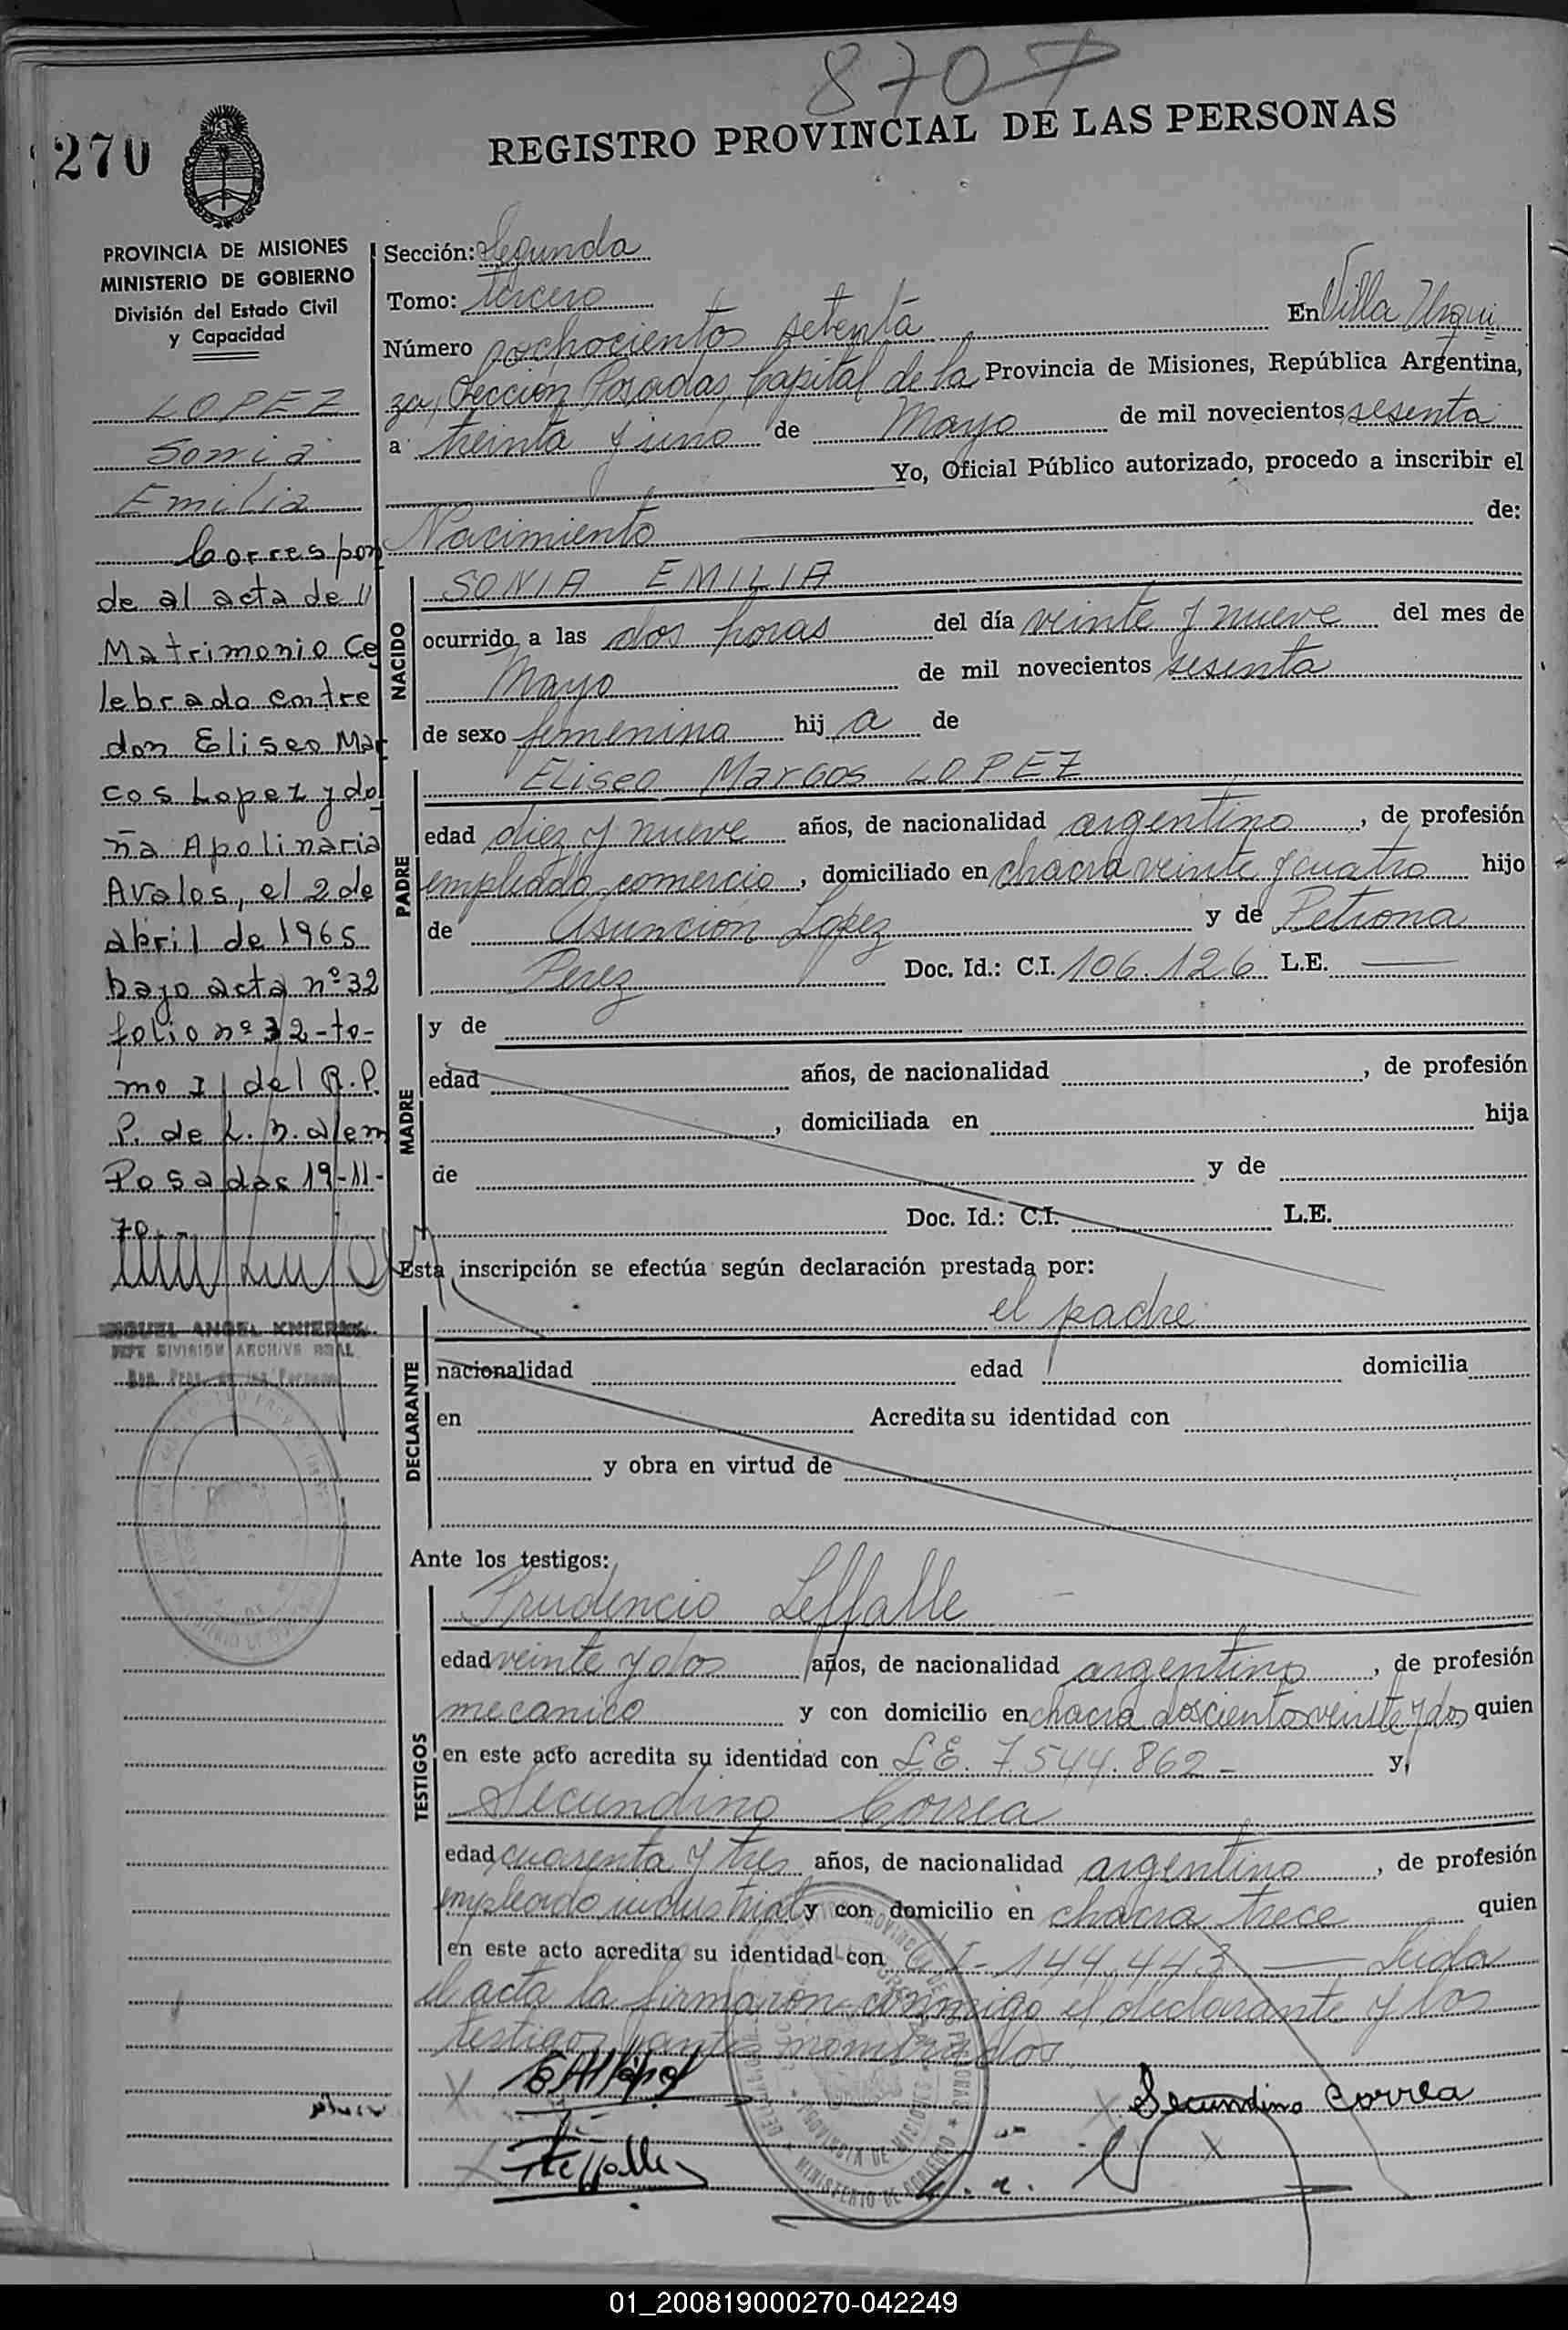 8707
270
REGISTRO PROVINCIAL DE LAS PERSONAS
PROVINCIA DE MISIONES
MINISTERIO DE GOBIERNO
División del Estado Civil
y Capacidad
LOPEZ
Sonia
Emilia
Correspon
de al acta de
Matrimonio Ce
lebrado entre
don Eliseo Mar
cos Lopez y do
ña Apolinaria
Avalos, el 2 de
abril de 1965
bajo acta nº 32
folio nº 32 - to-
mo I del R. P.
P. de L. N. alem
Posadas 19-11-
70
MIGUEL ANGEL
JEFE DIVISION ARCHIVO GRAL
Sección: Segunda
Tomo: tercero
Número ochocientos setenta En Villa Urqui
za, Sección Posadas Capital de la Provincia de Misiones, República Argentina,
a treinta y uno de Mayo de mil novecientos sesenta
Yo, Oficial Público autorizado, procedo a inscribir el
Nacimiento de:
NACIDO
SONIA EMILIA
ocurrido a las dos horas del día veinte y nueve del mes de
Mayo de mil novecientos sesenta
de sexo femenino hij a de
PADRE
Eliseo Marcos LOPEZ
edad diez y nueve años, de nacionalidad argentino, de profesión
empleado comercio, domiciliado en chacra veinte y cuatro hijo
de Asunción López y de Petrona
Perez Doc. Id.: C.I. 106.126 L.E. —
MADRE
y de
edad años, de nacionalidad , de profesión
, domiciliada en hija
de y de
Doc. Id.: C.I. L.E.
Esta inscripción se efectúa según declaración prestada por:
DECLARANTE
el padre
nacionalidad edad domicilia
en Acredita su identidad con
y obra en virtud de
Ante los testigos:
TESTIGOS
Prudencio Leffalle
edad veinte y dos años, de nacionalidad argentino, de profesión
mecanico y con domicilio en chacra doscientos veinte y dos quien
en este acto acredita su identidad con L.E. 7.544.862 - y,
Secundino Correa
edad cuarenta y tres años, de nacionalidad argentino, de profesión
empleado industrial y con domicilio en chacra trece quien
en este acto acredita su identidad con C I - 144.443 — Leida
el acta la firmaron conmigo el declarante y los
testigos antes nombrados.
Secundino Correa
Leffalle
MINISTERIO DE GOBIERNO
PROVINCIA DE MISIONES
01_200819000270-042249